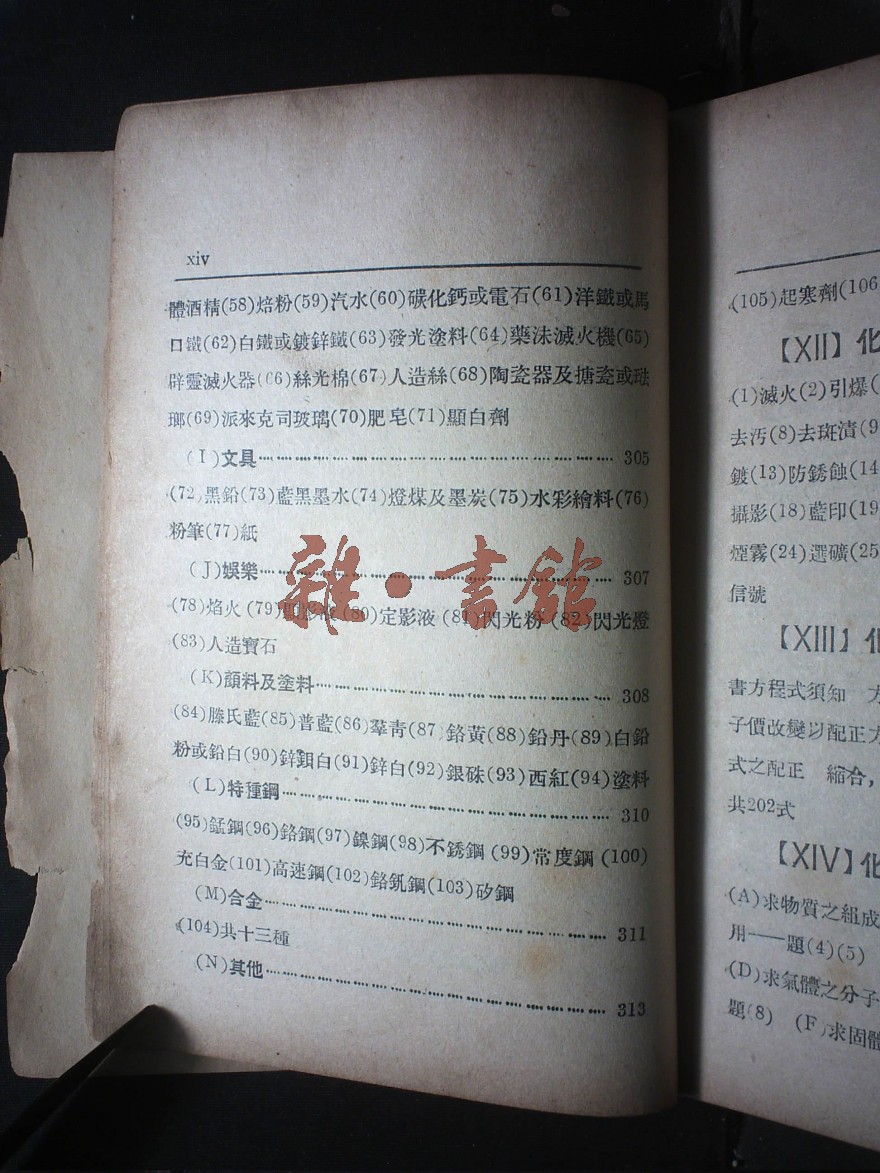 xiv
體酒精(58)焙粉(59)汽水(60)碳化鈣或電石(61)洋鐵或馬
口鐵(62)白鐵或鍍鋅鐵(63)發光塗料(64)藥沫滅火機(65)
辟靈滅火器(66)絲光棉(67)人造絲(68)陶瓷器及搪瓷或琺
瑯(69)派來克司玻璃(70)肥皂(71)顯白劑
(I)文具 305
(72)黑鉛(73)藍黑墨水(74)燈煤及墨炭(75)水彩繪料(76)
粉筆(77)紙
(J)娛樂 307
(78)焰火(79)顯影液(80)定影液(81)閃光粉(82)閃光燈
(83)人造寶石
(K)顏料及塗料 308
(84)滕氏藍(85)普藍(86)羣青(87)鉻黃(88)鉛丹(89)白鉛
粉或鉛白(90)鋅鋇白(91)鋅白(92)銀硃(93)西紅(94)塗料
(L)特種鋼 310
(95)錳鋼(96)鉻鋼(97)鎳鋼(98)不銹鋼(99)常度鋼(100)
充白金(101)高速鋼(102)鉻釩鋼(103)矽鋼
(M)合金 311
(104)共十三種
(N)其他 313
雜·書館
(105)起寒劑(106
【XII】化
(1)滅火(2)引爆(
去汚(8)去斑漬(9
鍍(13)防銹蝕(14
攝影(18)藍印(19
煙霧(24)選礦(25
信號
【XIII】化
書方程式須知 方
子價改變以配正方
式之配正 縮合,
共202式
【XIV】化
(A)求物質之組成
用——題(4)(5)
(D)求氣體之分子
題(8) (F)求固體